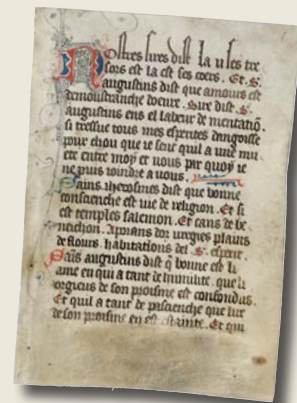 Nostres sires dist la u les tre
sors est la est ses cuers. Et .S.
augustins dist que amours est
demoustranche doeure. Sire dist .S.
augustins ens el labeur de mentatiō.
si tressue tous mes esperites dangoisse
pour chou que ie senc quil a une mu
ete entre moy et uous par quoy ie
ne puis ioindre a uous.
Sains iherosmes dist que bonne
conscienche est uie de religion. Et si
est temples salemon. Et cans de be
neichon. Apriaus dor uregies plains
de flours. habitations del .S. esperit.
Sains augustins dist q̄ bonne est li
ame en qui a tant de humilite. que li
orgieus de son proisme est confondus.
Et quil a tant de pascienche que lire
de son proisme en est estainte. Et qui